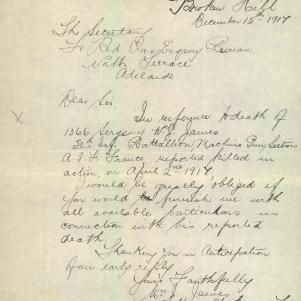 Broken Hill
December 15th 1917
The Secretary
Sr Red Cross Enquiry Bureau
North Terrace
Adelaide
Dear Sir,
In reference to death of
1366 Sergeant W. James
50th Inf. Battallion Machine Gun Section
A.I.F. France reported killed in
action, on April 2nd 1917
I would be greatly obliged if
you would furnish me with
all available particulars in
connection with his reported
death
Thanking You in Anticipation
of an early reply
Yours Faithfully
Wm James